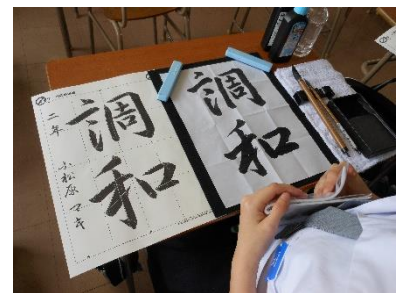 調和
二年 小松原マキ
調和